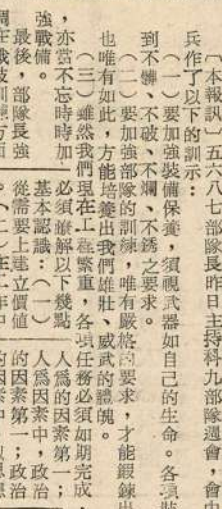 〔本報訊〕五六八七部隊長昨日主持科九部隊週會，會中
兵作了以下的訓示：
（一）要加強裝備保養，須視武器如自己的生命。各項裝
到不髒、不破、不爛、不銹之要求。
（二）要加強部隊的訓練，唯有嚴格的要求，才能鍛鍊出
也唯有如此，方能培養出我們雄壯、威武的體魄。
（三）雖然我們現在工程繁重，各項任務必須如期完成
，亦當不忘時時加
強戰備。
最後，部隊長強
必須瞭解以下幾點
基本認識：（一）
從需要上建立價值
。（二）在工作中
人為的因素第一；
人為因素中，政治
的因素第一；政治
的因素中